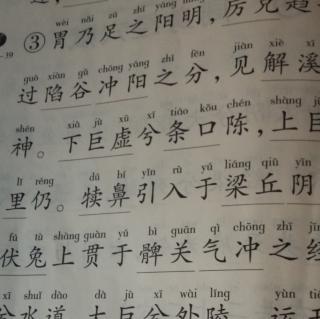 wèi nǎi zú zhī yáng míng
③胃乃足之阳明,厉兑
guò xiàn gǔ chōng yáng zhī fēn jiàn xiè xī
过陷谷冲阳之分,见解溪
shén xià jù xū xī tiáo kǒu chén shàng
神。下巨虚兮条口陈,上巨
lǐ réng dú bí yǐn rù yú liáng qiū yīn
里仍。犊鼻引入于梁丘阴
fú tù shàng guàn yú bì guān qì chōng zhī
伏兔上贯于髀关气冲之经
xī shuǐ dào dà jù xī wài líng yùn
兮水道,大巨兮外陵,运